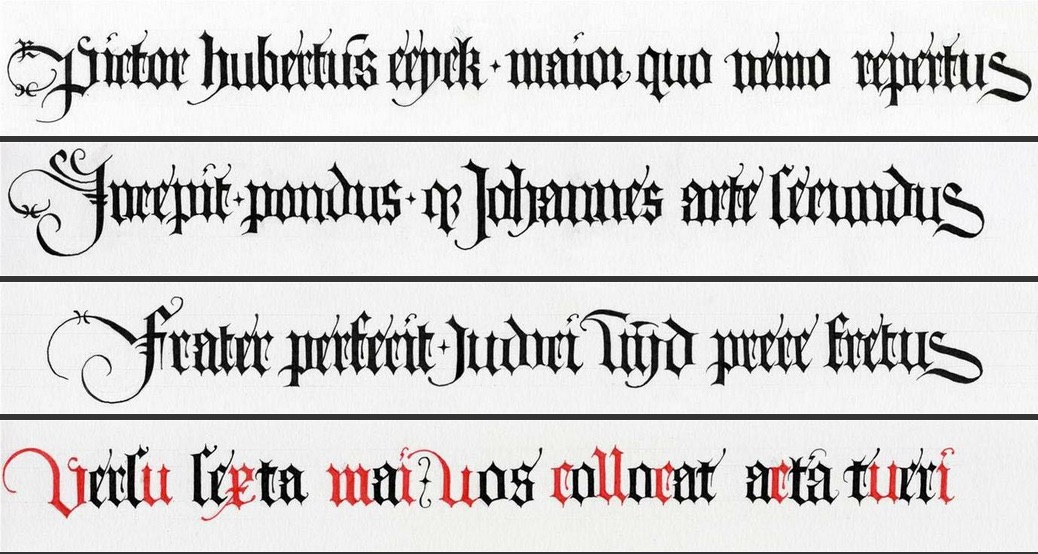 Pictor hubertus eeyck · maior quo nemo repertus
Incepit · pondus · q3 Johannes arte secundus
Frater perfecit · Judoci Vijd prece fretus
Versu sexta mai · Vos collocat acta tueri